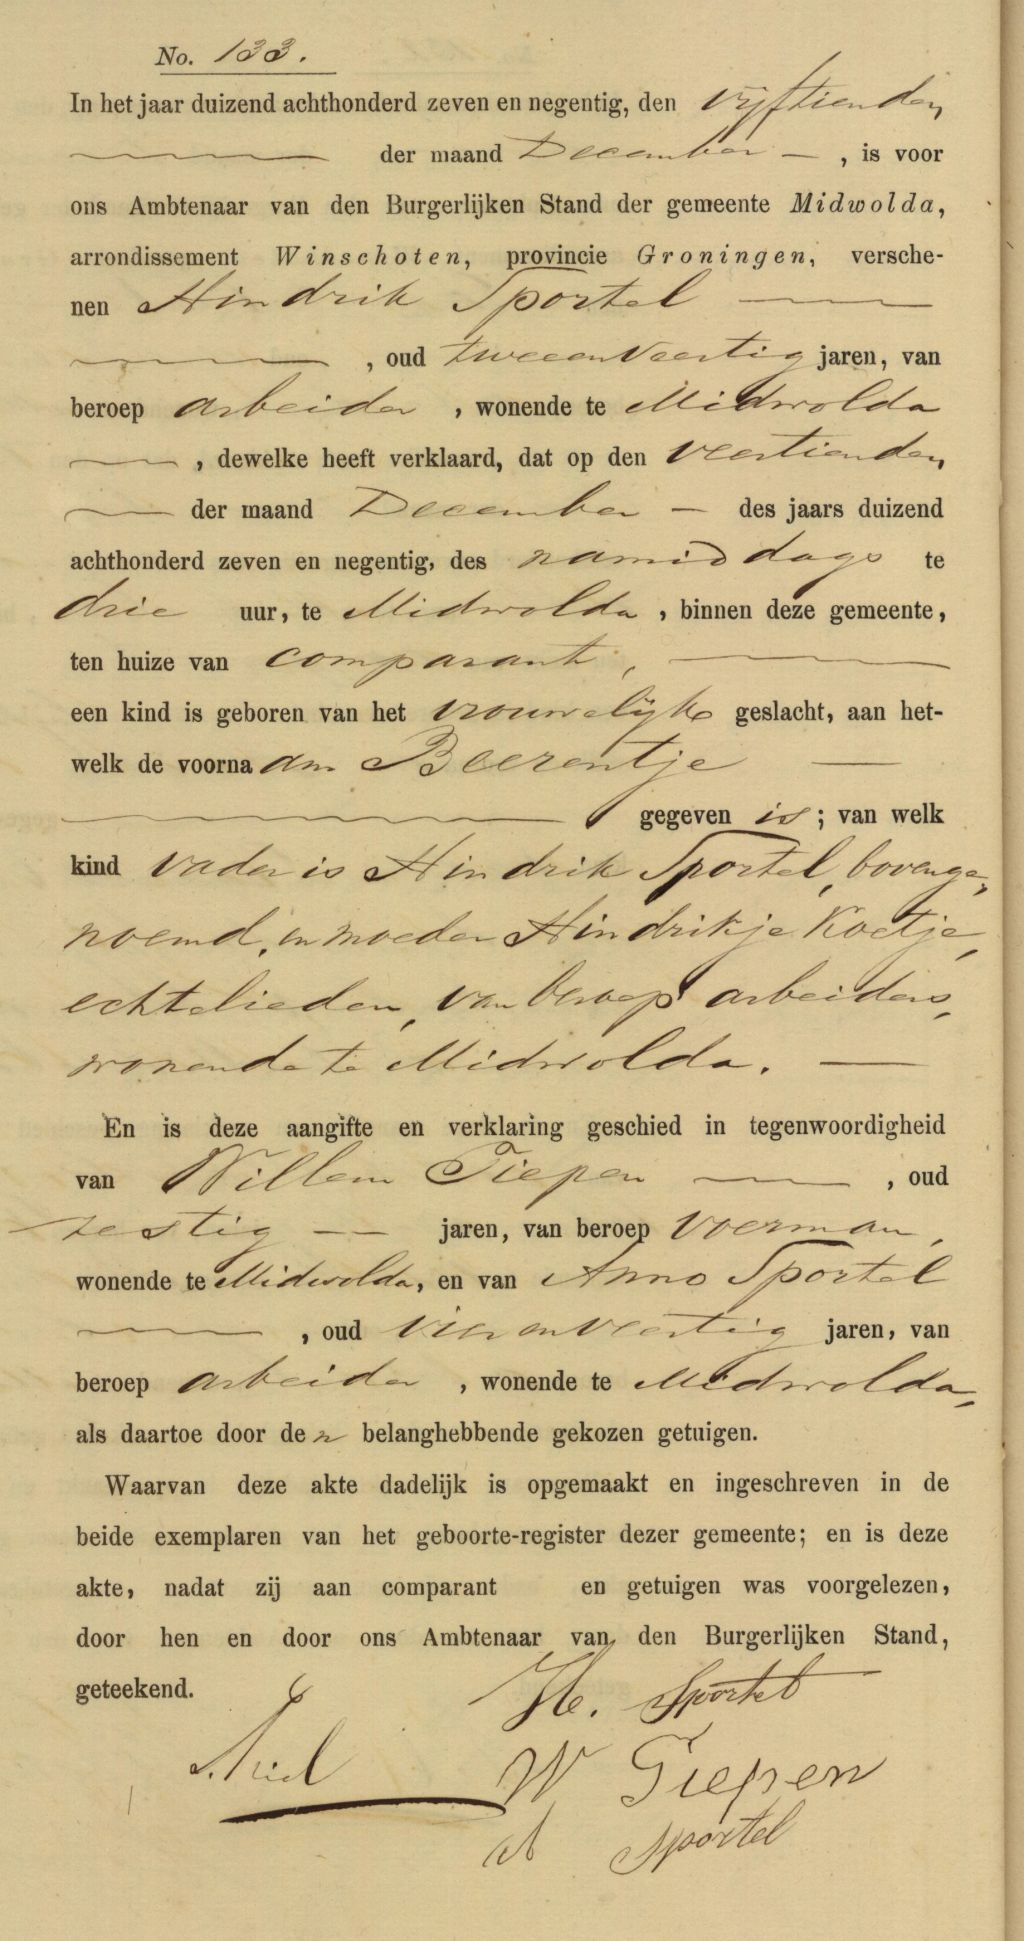 No. 133.
In het jaar duizend achthonderd zeven en negentig, den vijftienden
der maand December, is voor
ons Ambtenaar van den Burgerlijken Stand der gemeente Midwolda,
arrondissement Winschoten, provincie Groningen, versche-
nen Hindrik Sportel
, oud tweeenveertig jaren, van
beroep arbeider, wonende te Midwolda
, dewelke heeft verklaard, dat op den veertienden
der maand December des jaars duizend
achthonderd zeven en negentig, des namiddags te
drie uur, te Midwolda, binnen deze gemeente,
ten huize van comparant,
een kind is geboren van het vrouwelijke geslacht, aan het-
welk de voornaam Beerentje
gegeven is; van welk
kind vader is Hindrik Sportel, bovenge-
noemd, en moeder Hindrikje Koetje,
echtelieden, van beroep arbeiders,
wonende te Midwolda.
En is deze aangifte en verklaring geschied in tegenwoordigheid
van Willem Tiepen, oud
zestig jaren, van beroep voerman,
wonende te Midwolda, en van Anno Sportel
, oud vierenveertig jaren, van
beroep arbeider, wonende te Midwolda,
als daartoe door den belanghebbende gekozen getuigen.
Waarvan deze akte dadelijk is opgemaakt en ingeschreven in de
beide exemplaren van het geboorte-register dezer gemeente; en is deze
akte, nadat zij aan comparant en getuigen was voorgelezen,
door hen en door ons Ambtenaar van den Burgerlijken Stand,
geteekend.
H. Sportel
W Tiepen
A Sportel